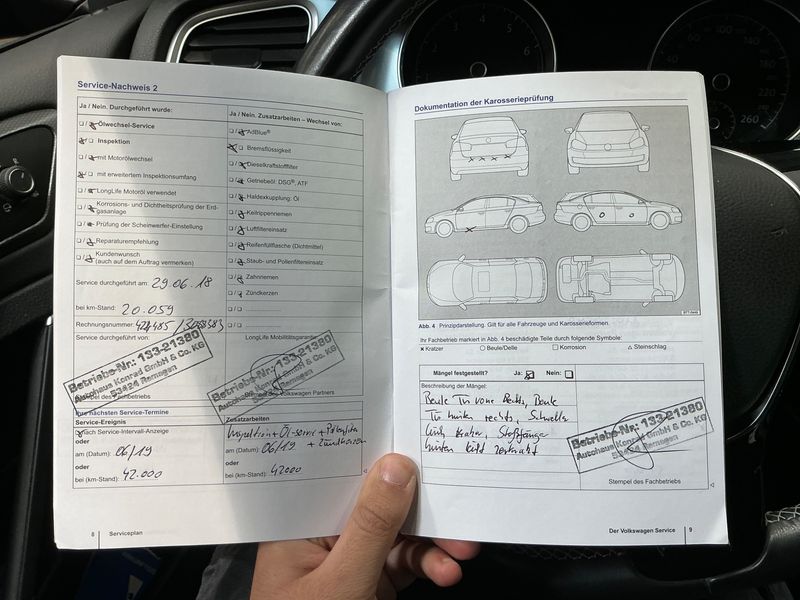 Service-Nachweis 2
Ja / Nein. Durchgeführt wurde:
Ölwechsel-Service
Inspektion
mit Motorölwechsel
mit erweitertem Inspektionsumfang
LongLife Motoröl verwendet
Korrosions- und Dichtheitsprüfung der Erd-
gasanlage
Prüfung der Scheinwerfer-Einstellung
Reparaturempfehlung
Kundenwunsch
(auch auf dem Auftrag vermerken)
Service durchgeführt am: 29.06.18
bei km-Stand: 20.059
Rechnungsnummer:
Service durchgeführt von:
Betriebs-Nr.: 133-21380
Autohaus Konrad GmbH & Co. KG
53424 Remagen
Stempel des Fachbetriebs
Ja / Nein. Zusatzarbeiten – Wechsel von:
AdBlue®
Bremsflüssigkeit
Dieselkraftstofffilter
Getriebeöl: DSG®, ATF
Haldexkupplung: Öl
Keilrippenriemen
Luftfiltereinsatz
Reifenfüllflasche (Dichtmittel)
Staub- und Pollenfiltereinsatz
Zahnriemen
Zündkerzen
LongLife Mobilitätsgarantie
Betriebs-Nr.: 133-21380
Autohaus Konrad GmbH & Co. KG
53424 Remagen
Volkswagen Partners
Ihre nächsten Service-Termine
Service-Ereignis
nach Service-Intervall-Anzeige
oder
am (Datum): 06/19
oder
bei (km-Stand): 42.000
Zusatzarbeiten
Inspektion + Öl-Service + Pollenfilter
am (Datum): 06/19 + Zündkerzen
oder
bei (km-Stand): 42000
8 Serviceplan
Dokumentation der Karosserieprüfung
Abb. 4 Prinzipdarstellung. Gilt für alle Fahrzeuge und Karosserieformen.
Ihr Fachbetrieb markiert in Abb. 4 beschädigte Teile durch folgende Symbole:
× Kratzer ○ Beule/Delle □ Korrosion △ Steinschlag
Mängel festgestellt? Ja: Nein:
Beschreibung der Mängel:
Beule Tür vorne rechts, Beule
Tür hinten rechts, Schweller
links Kratzer, Stoßfänger
hinten verkratzt
Betriebs-Nr.: 133-21380
Autohaus Konrad GmbH & Co. KG
53424 Remagen
Stempel des Fachbetriebs
Der Volkswagen Service 9